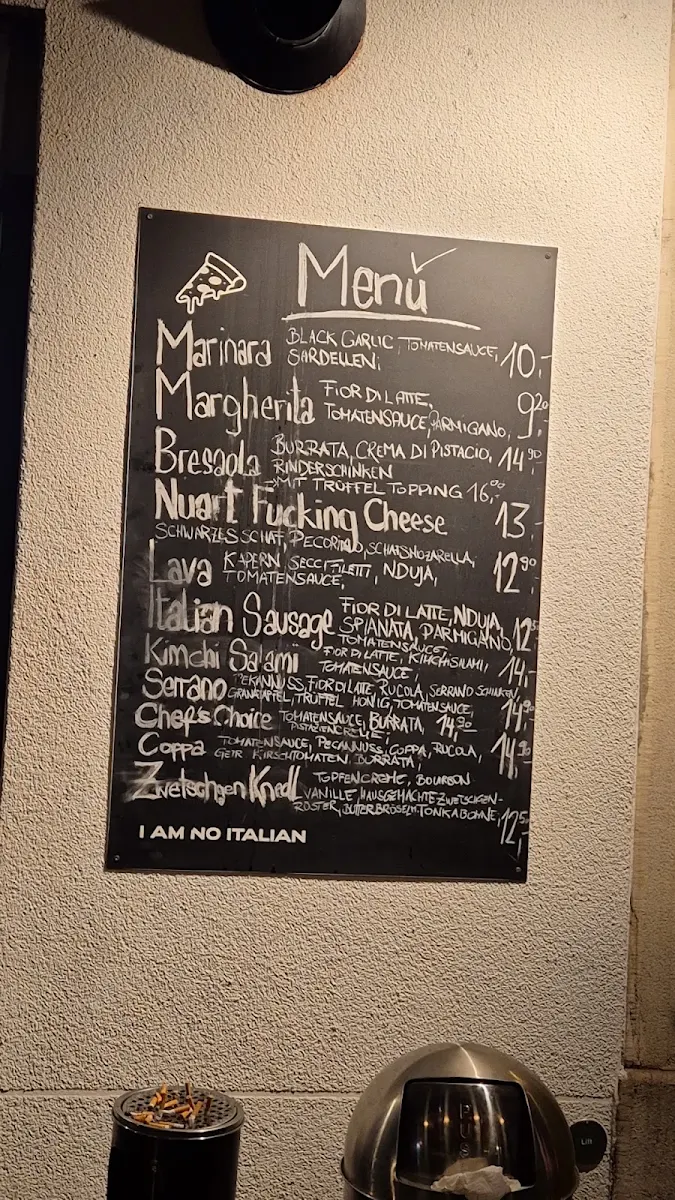 Menù
Marinara BLACK GARLIC, TOMATENSAUCE, 10,-
SARDELLEN,
Margherita FIOR DI LATTE, 9,20
TOMATENSAUCE, PARMIGANO,
Bresaola BURRATA, CREMA DI PISTACIO, 14,90
RINDERSCHINKEN
→MIT TRÜFFEL TOPPING 16,00
Nuart Fucking Cheese 13,-
SCHWARZES SCHAF, PECORINO, SCHAFSMOZARELLA,
Lava KAPERN SECCI FILETTI, NDUJA, 12,90
TOMATENSAUCE,
Italian Sausage FIOR DI LATTE, NDUJA,
SPIANATA, PARMIGANO,
TOMATENSAUCE,
Kimchi Salami FIOR DI LATTE, KIMCHISILAMI, 14,-
TOMATENSAUCE,
Serrano PEKANNUSS, FIOR DI LATE, RUCOLA, SERRANO SCHINKEN,
GRANATAPFEL, TRÜFFEL HONIG, TOMATENSAUCE, 14,90
Chef's Choice TOMATENSAUCE, BURRATA, 14,90
PISTAZIENCREME,
Coppa TOMATENSAUCE, PECANNUSS, COPPA, RUCOLA, 14,90
GETR KIRSCHTOMATEN, BURRATA,
Zwetschgen Knedl TOPFENCREME, BOURBON
VANILLE, HAUSGEMACHTE ZWETSCHGEN-
RÖSTER, BUTTERBRÖSEL, TONKABOHNE, 12,50
I AM NO ITALIAN